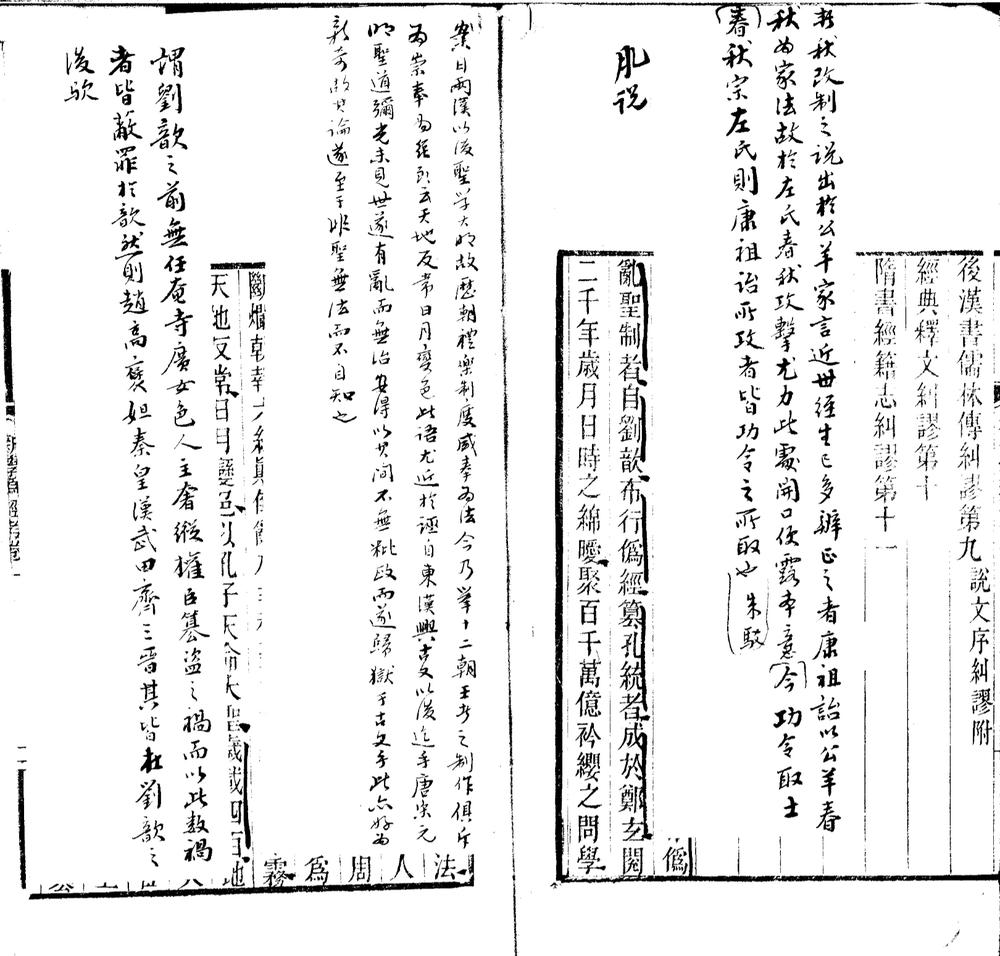 後漢書儒林傳糾謬第九　說文序糾謬附
經典釋文糾謬第十
隋書經籍志糾謬第十一
秋改制之說出於公羊家言近世經生已多辨正之者康祖詒以公羊春
秋為家法故於左氏春秋攻擊尤力此處開口便露本意今功令取士
春秋宗左氏則康祖詒所攻者皆功令之所取也　朱駁
說
偽
亂聖制者自劉歆布行偽經篡孔統者成於鄭玄閱
二千年歲月日時之綿曖聚百千萬億衿纓之問學
案曰兩漢以後聖學大明故歷朝禮樂制度咸奉為法今乃舉十二朝王者之制作俱斥
為崇奉偽經則云天地反常日月變色此語尤近於誣自東漢興以後迄乎唐宋元
明聖道彌光未見世遂有亂而無治安得以其間不無秕政而遂歸獄于古文乎此亦好為
新奇故其論遂至于非聖無法而不自知也
法
人
周
為
霧
天地反常日月變色以孔子天命大聖歲載四百地
謂劉歆之前無任奄寺廣女色人主奢縱權臣篡盜之禍而以此數禍
者皆蔽罪於歆然則趙高褒妲秦皇漢武田齊三晉其皆在劉歆之
後歟